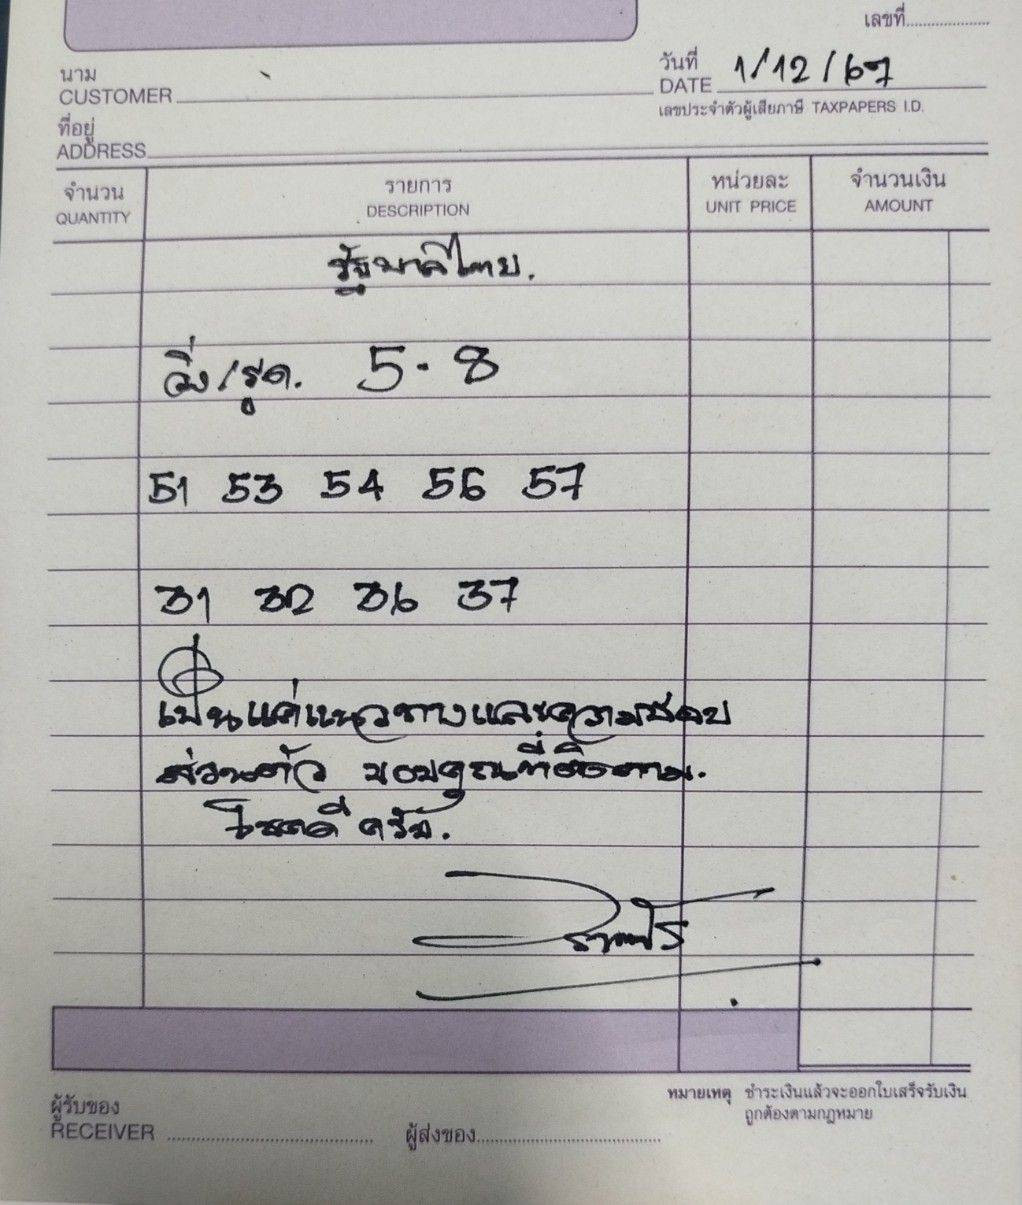 เลขที่
นาม
CUSTOMER
วันที่
DATE 1/12/67
เลขประจำตัวผู้เสียภาษี TAXPAPERS I.D.
ที่อยู่
ADDRESS
จำนวน รายการ หน่วยละ จำนวนเงิน
QUANTITY DESCRIPTION UNIT PRICE AMOUNT
รัฐบาลไทย.
วิ่ง/รูด. 5-8
51 53 54 56 57
31 32 36 37
เป็นแค่แนวทางและความชอบ
ส่วนตัว ขอบคุณที่ติดตาม.
โชคดี ครับ.
หมายเหตุ ชำระเงินแล้วจะออกใบเสร็จรับเงิน
ถูกต้องตามกฎหมาย
ผู้รับของ
RECEIVER ผู้ส่งของ